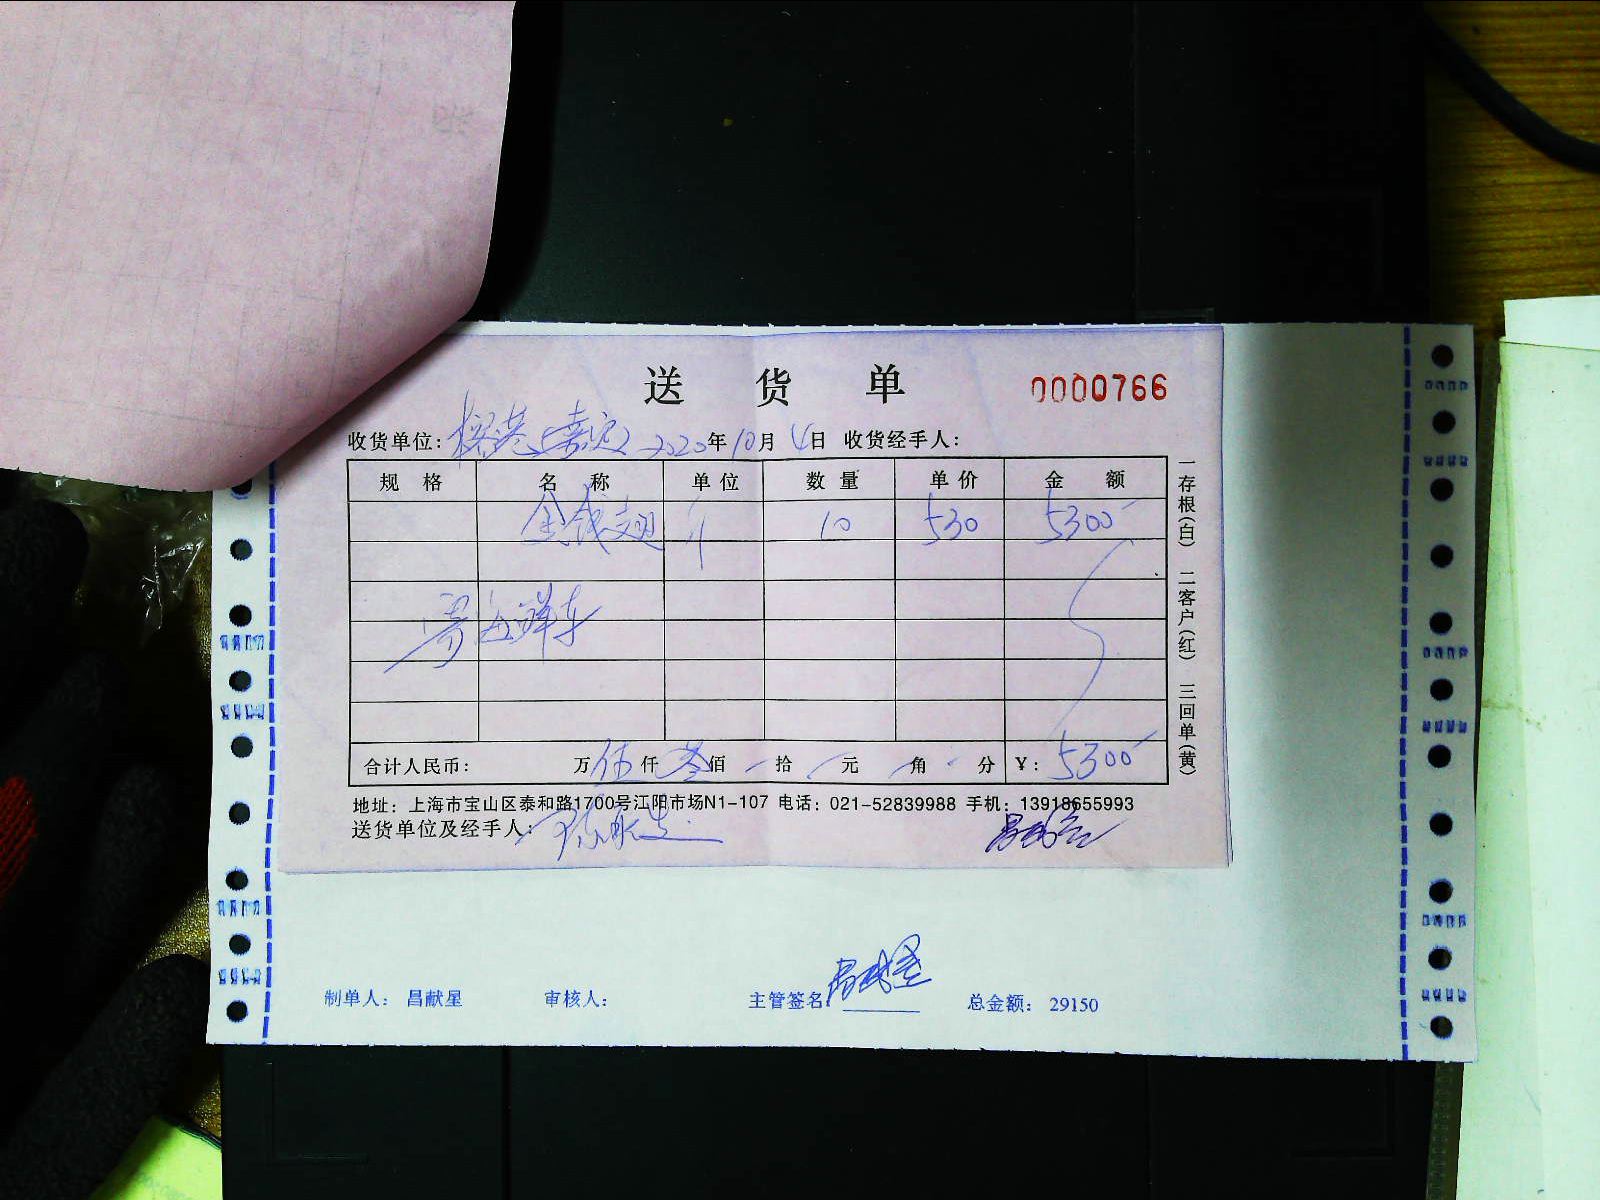 送货单 0000766
收货单位: 榕港(嘉定) 2020年10月4日 收货经手人:
规格 名称 单位 数量 单价 金额
金钱翅 斤 10 530 5300
寄海鲜车
合计人民币: 万伍仟叁佰 拾 元 角 分 ¥: 5300
地址: 上海市宝山区泰和路1700号江阳市场N1-107 电话: 021-52839988 手机: 13918655993
送货单位及经手人:
昌献星
一存根(白) 二客户(红) 三回单(黄)
制单人: 昌献星 审核人: 主管签名: 昌献星 总金额: 29150